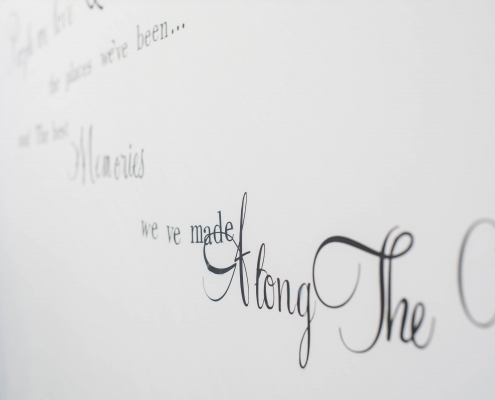 People we love &
the places we've been...
and The best
Memories
we ve made
Along The